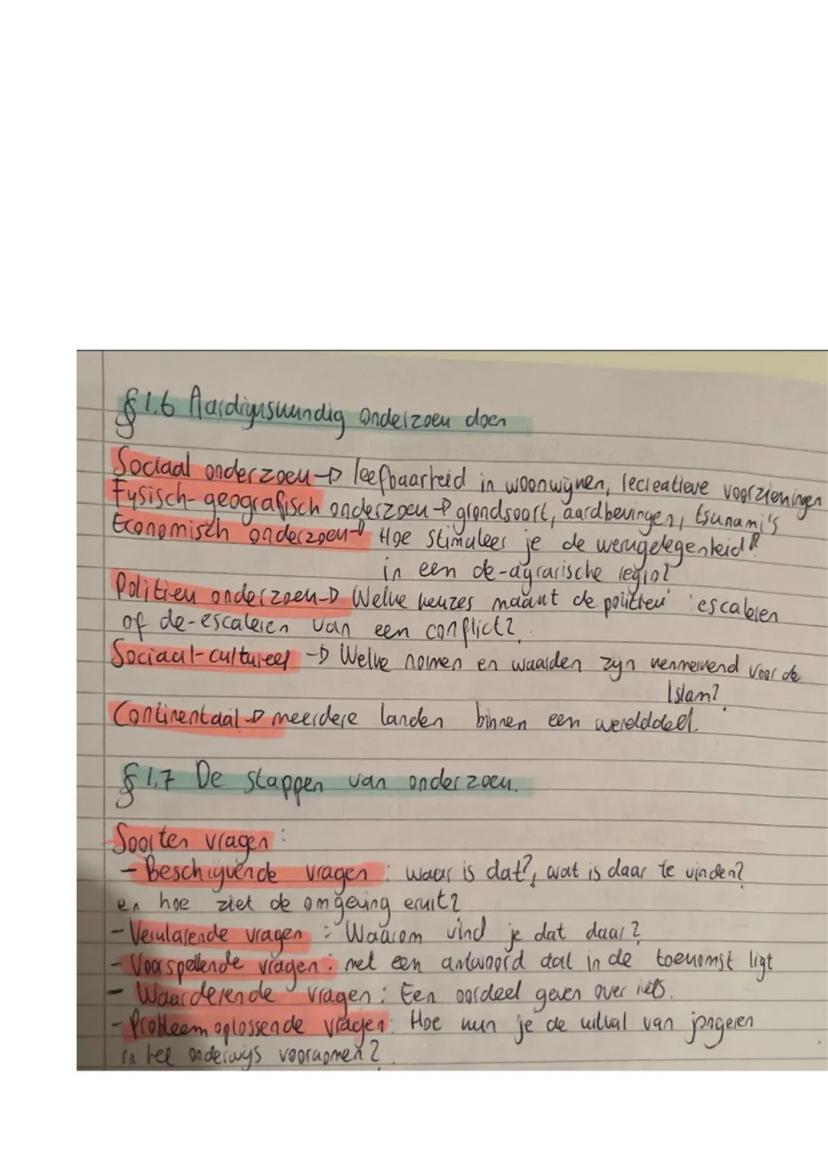 § 1.6 Aardrijkskundig onderzoek doen
Sociaal onderzoek → leefbaarheid in woonwijken, recreatieve voorzieningen
Fysisch-geografisch onderzoek → grondsoort, aardbevingen, tsunami's
Economisch onderzoek → Hoe stimuleer je de werkgelegenheid
in een de-agrarische regio?
Politiek onderzoek → Welke keuzes maakt de politiek escaleren
of de-escaleren van een conflict?
Sociaal-cultureel → Welke normen en waarden zijn kenmerkend voor de
Islam?
Continentaal → meerdere landen binnen een werelddeel.
§ 1.7 De stappen van onderzoek.
Soorten vragen:
- Beschrijvende vragen : waar is dat?, wat is daar te vinden?
en hoe ziet de omgeving eruit?
- Verklarende vragen : Waarom vind je dat daar?
- Voorspellende vragen : met een antwoord dat in de toekomst ligt
- Waarderende vragen : Een oordeel geven over iets.
- Probleemoplossende vragen: Hoe kun je de uitval van jongeren
in het onderwijs voorkomen?